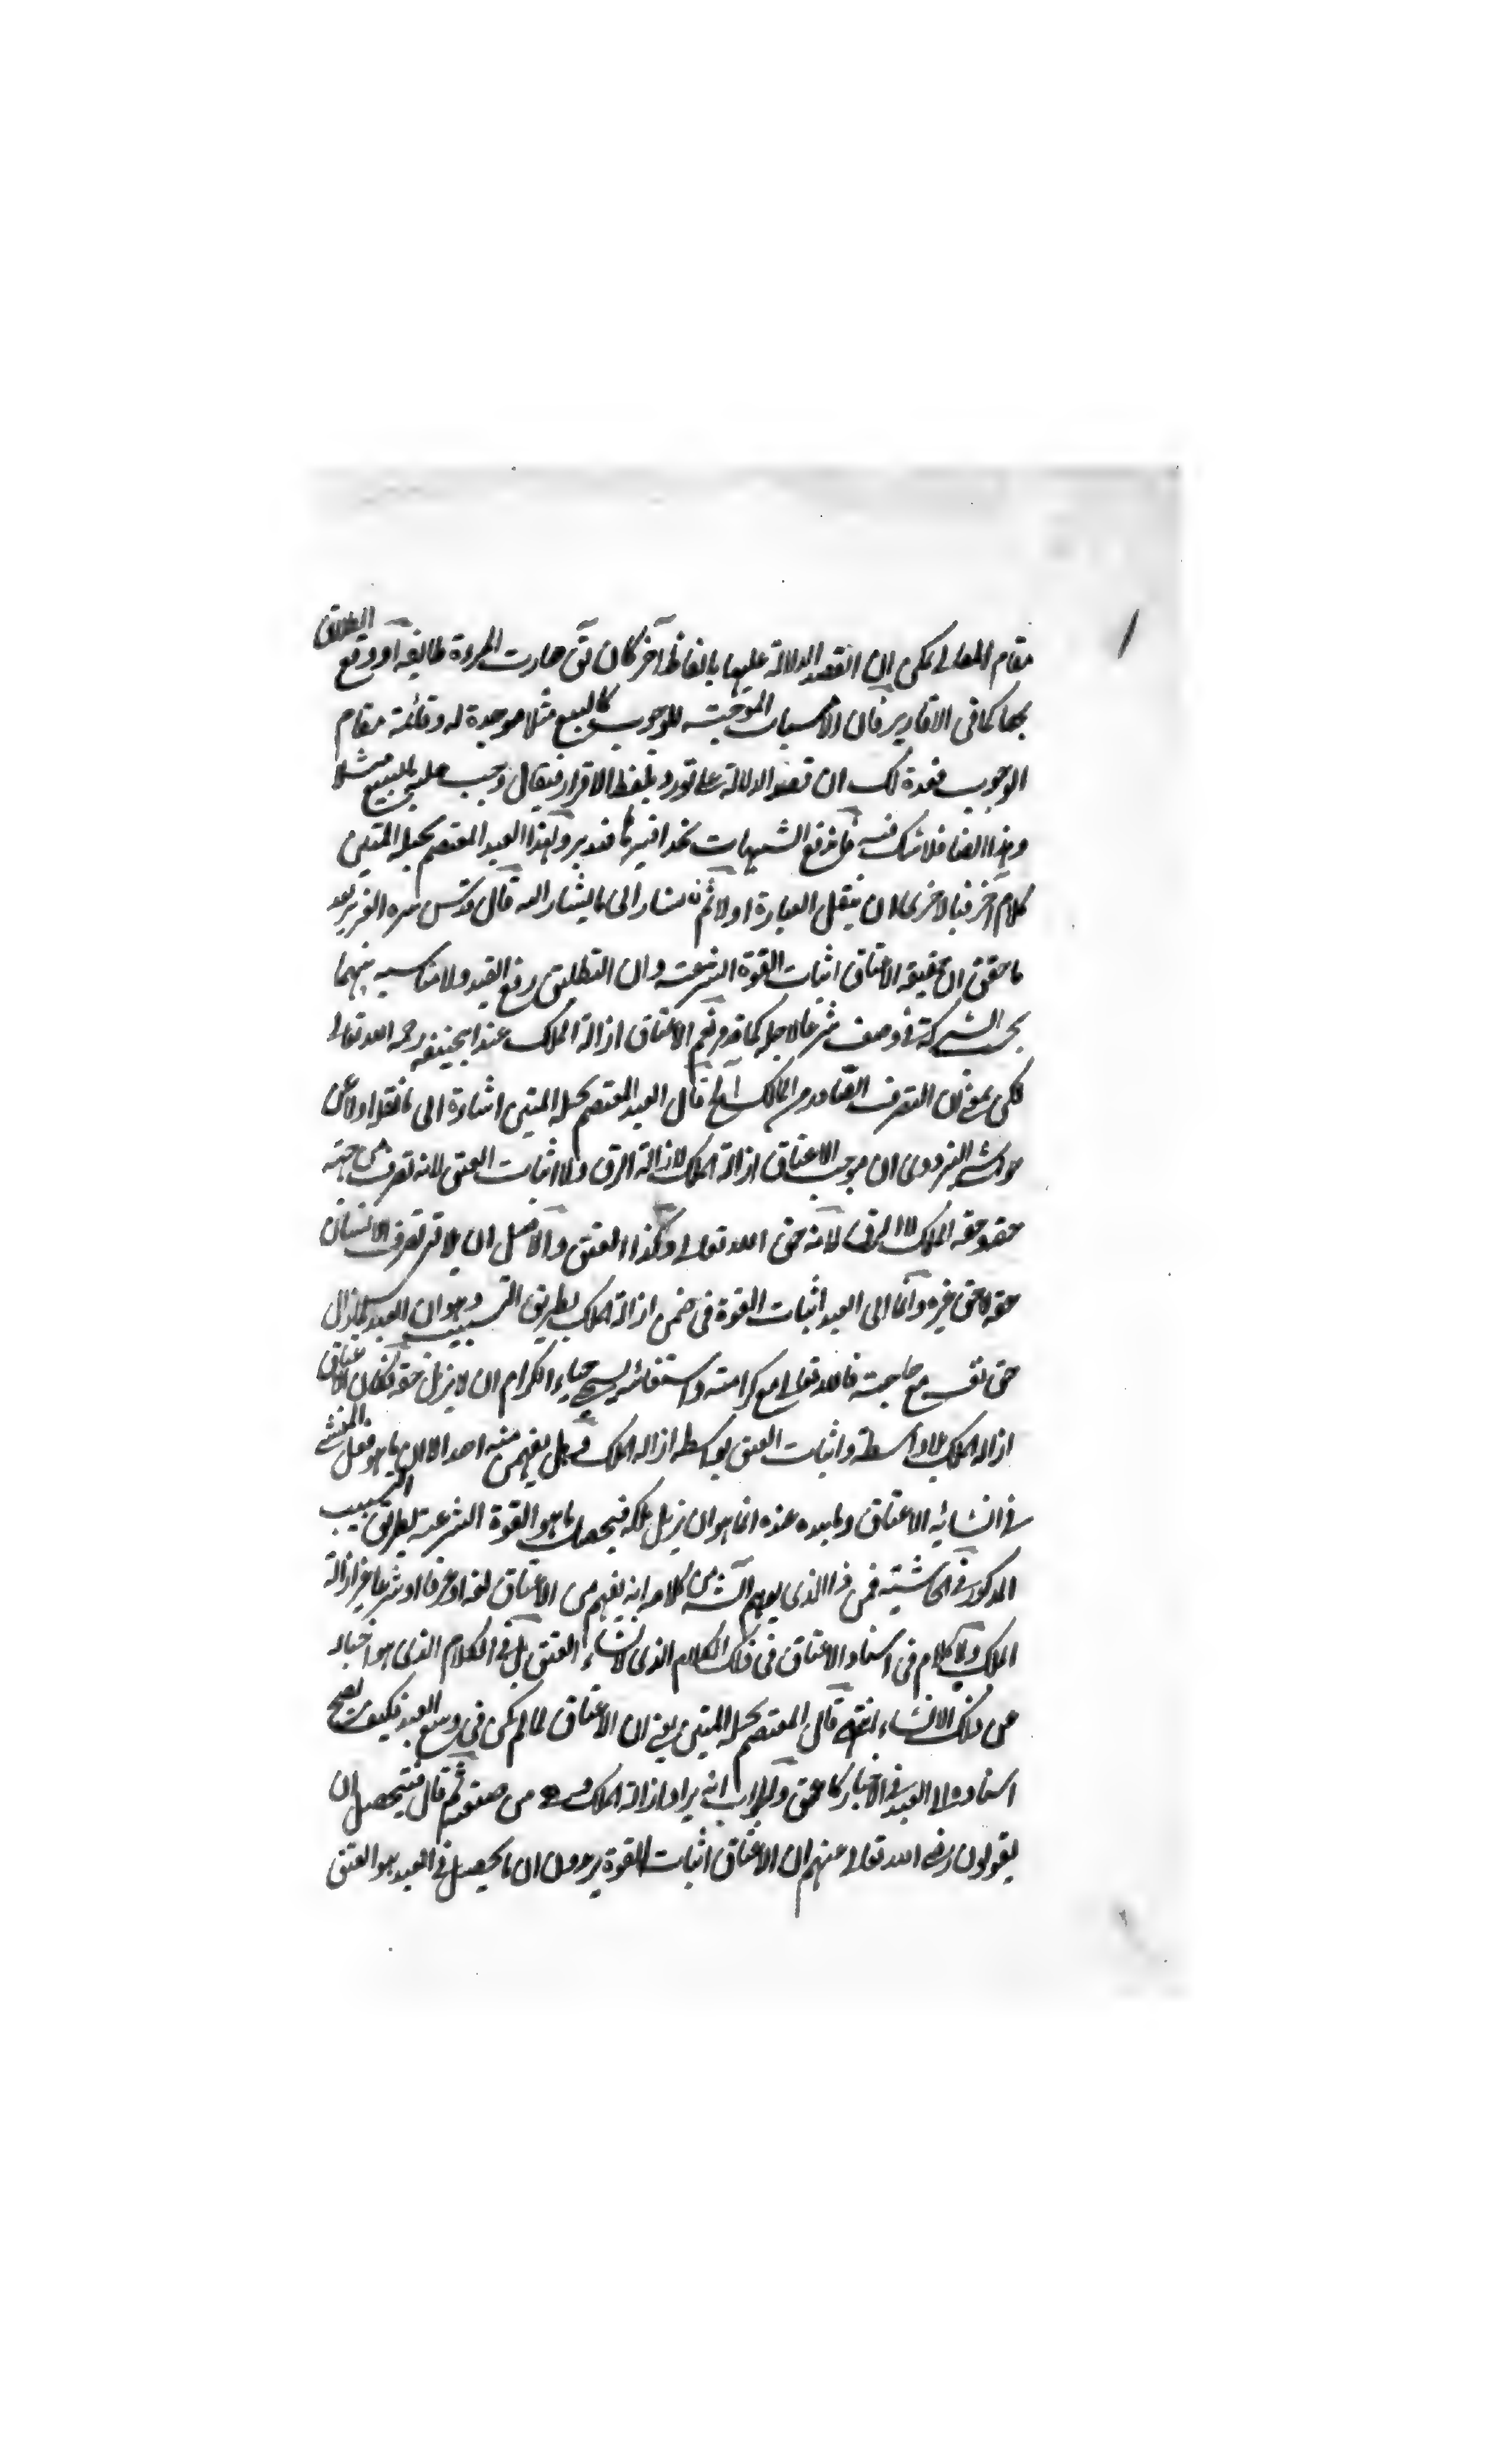 مقام المعانى يمكن ان القصد الدلالة عليها بالفاظ آخر كان تق صارت المرءة طالقة او وقع الطلاق
بها كما فى الاقارير فان الاسباب الموجبة للوجوب كالبيع مثلا موجدة له وقائمة مقام
الوجوب فعند ذلك ان قصد الدلالة على تورد بلفظ الاقرار فيقال وجب على المبيع مثلا
وبهذا ايضا فلا شك فيه فاندفع الشبهات بحذافيرها فتدبر ولهذا العبد المعتصم بحبله المتين
كلام آخر فبالاخرى ان ينقل العبارة اولا ثم نشار الى ما يشار اليه قال قدس سره العزيز بعد
ما حقق ان حقيقة الاعتاق اثبات القوة الشرعية وان التطليق رفع القيد ولا مناسبة بينهما
بحسب الشركة فى وصف شرعا لاجله كما قد نعم الاعتاق ازالة الملك عند ابيحنيفة رحمه الله تعالى
لكن بمعنى ان التصرف الصادر من المالك آه قال العبد المعتصم بحبله المتين اشارة الى ما نقل اولا عن
حواشى البزدوى ان موجب الاعتاق ازالة الملك لا ازالة الرق ولا اثبات العتق لانه تصرف من جهة
حقه وحقه الملك لا الرق لانه حق الله تعالى وكذا العتق والاصل ان يلاقى تصرف الانسان
حقه لا حق غيره وانما الى العبد اثبات القوة فى ضمن ازالة الملك بطريق التسبيب وهو ان العبد لما زال
حق نفسه مع حاجته فالله تعالى مع كرامته واستغنائه يستحيى حياء الكرام ان لا يزيل حقه فكان الاعتاق
ازالة الملك بلا واسطة واثبات العتق بواسطة ازالة الملك فهل يفهم منه احد الا ان ما هو فعل المنشئ
فى انشائه الاعتاق وما بيده عنده انما هو ان يزيل ملكه فيحصل ما هو القوة الشرعية بطريق التسبيب
المذكور فى الحاشية فمن ذا الذى يوهم الش من كلامه انه يفهم من الاعتاق لغة او عرفا او شرعا غير ازالة
الملك ولا كلام فى اسناد الاعتاق فى ذلك الكلام الذى لانشاء العتق بل فى الكلام الذى هو اخبار
عن ذلك الانشاء انتهى قال المعتصم بحبله المتين يعنى ان الاعتاق لما لم يكن فى وسع العبد فكيف يصح
اسناده الى العبد فى الاخبار كاعتق والجواب انه يراد ازالة الملك من ثم قال فيتحصل ان
يقولون رضى الله تعالى عنهم ان الاعتاق اثبات القوة يريدون ان ما يحصل فى العبد هو العتق